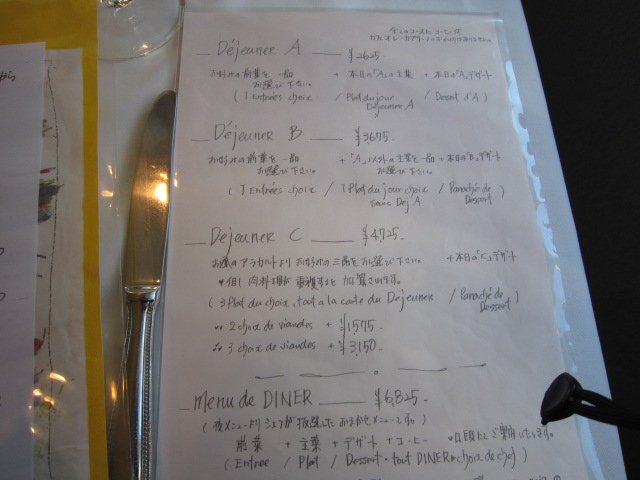 全てのコースに コーヒー付
Déjeuner A ¥2625.
お好みの前菜を一品 + 本日の「A」の主菜 + 本日の「A」デザート
お選び下さい。
( 1 Entrées choix / Plat du jour / Dessert d'A )
Déjeuner A
Déjeuner B ¥3675.
お好みの前菜を一品 + 「A」以外の主菜を一品 + 本日の「B」デザート
お選び下さい。 お選び下さい。
( 1 Entrées choix / 1 Plat du jour choix / Panaché de )
sans Dej A Dessert
Dejeuner C ¥4725.
お昼のアラカルトより お好みの三品をお選び下さい。 + 本日の「C」デザート
但し肉料理が重複すると加算されます。
( 3 Plat du choix, tout a la carte du Dejeuner / Panaché de )
Dessert
2 choix de viandes + ¥1575
3 choix de viandes + ¥3,150.
menu de DINER ¥6,825.
( 夜メニューよりシェフが抜選した おまかせメニューです。)
前菜 + 主菜 + デザート + コーヒー 口頭にてご案内いたします。
( Entree / Plat / Dessert. tout DINER choix de chef )